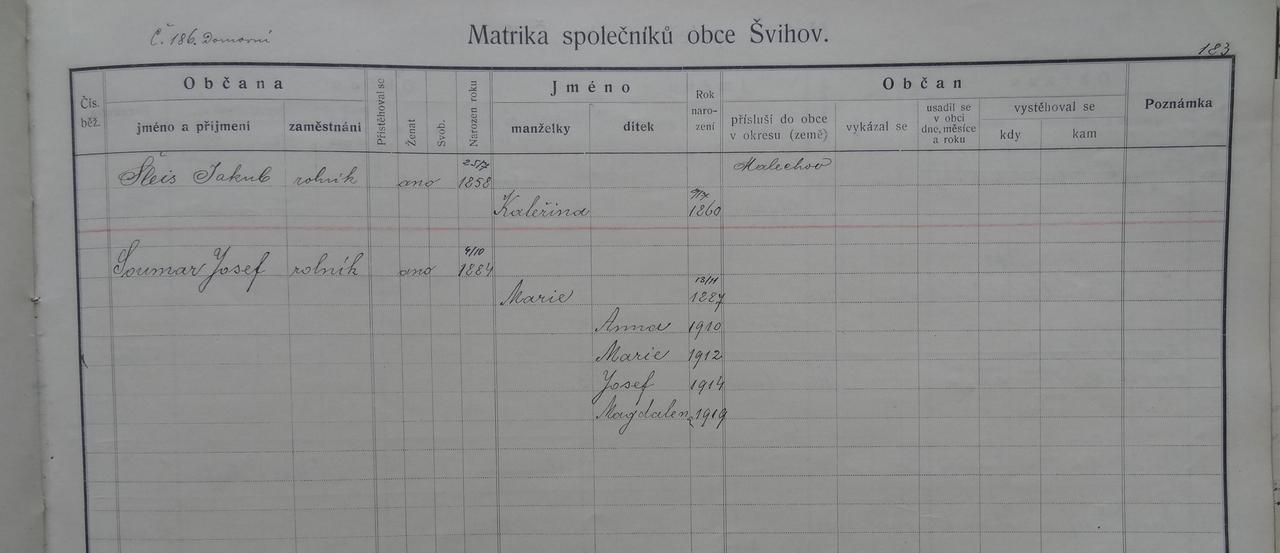 Č. 186. Domovní
Matrika společníků obce Švihov.
183
Čís. běž.
Občana
jméno a příjmení
zaměstnání
Přistěhoval se
Ženat
Svob.
Narozen roku
Jméno
manželky
dítek
Rok naro- zení
Občan
přísluší do obce v okresu (země)
vykázal se
usadil se v obci dne, měsíce a roku
vystěhoval se
kdy
kam
Poznámka
Šleis Jakub rolník ano 25/7 1858 Malechov
Kateřina 1860
Soumar Josef rolník ano 4/10 1884
Marie 13/11 1887
Anna 1910
Marie 1912
Josef 1914
Magdalena 1919